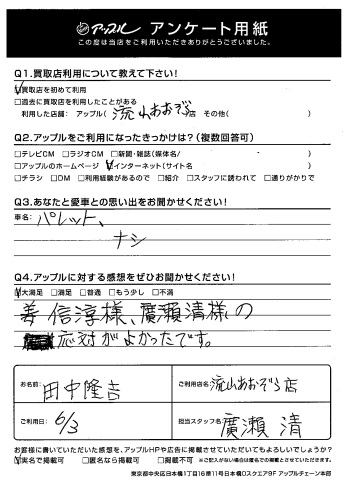 アップル アンケート用紙
この度は当店をご利用いただきありがとうございました。
Q1.買取店利用について教えて下さい!
☑買取店を初めて利用
□過去に買取店を利用したことがある
利用した店舗: アップル( 流山あおぞら 店 その他( )
Q2.アップルをご利用になったきっかけは?(複数回答可)
□テレビCM □ラジオCM □新聞・雑誌(媒体名/ )
□アップルのホームページ ☑インターネット(サイト名 )
□チラシ □DM □利用経験があるので □紹介 □スタッフに誘われて □通りがかりで
Q3.あなたと愛車との思い出をお聞かせください!
車名: パレット、
ナシ
Q4.アップルに対する感想をぜひお聞かせください!
☑大満足 □満足 □普通 □もう少し □不満
姜信淳様、廣瀬清様の
応対がよかったです。
お名前: 田中隆吉
ご利用店名: 流山あおぞら店
ご利用日: 6/3
担当スタッフ名: 廣瀬 清
お客様に書いていただいた感想を、アップルHPや広告に掲載させていただいてもよろしいでしょうか?
☑実名で掲載可 □匿名なら掲載可 □掲載不可 ※ご記入がない場合は匿名での掲載とさせていただきます。
東京都中央区日本橋1丁目16番11号日本橋Dスクエア9F アップルチェーン本部